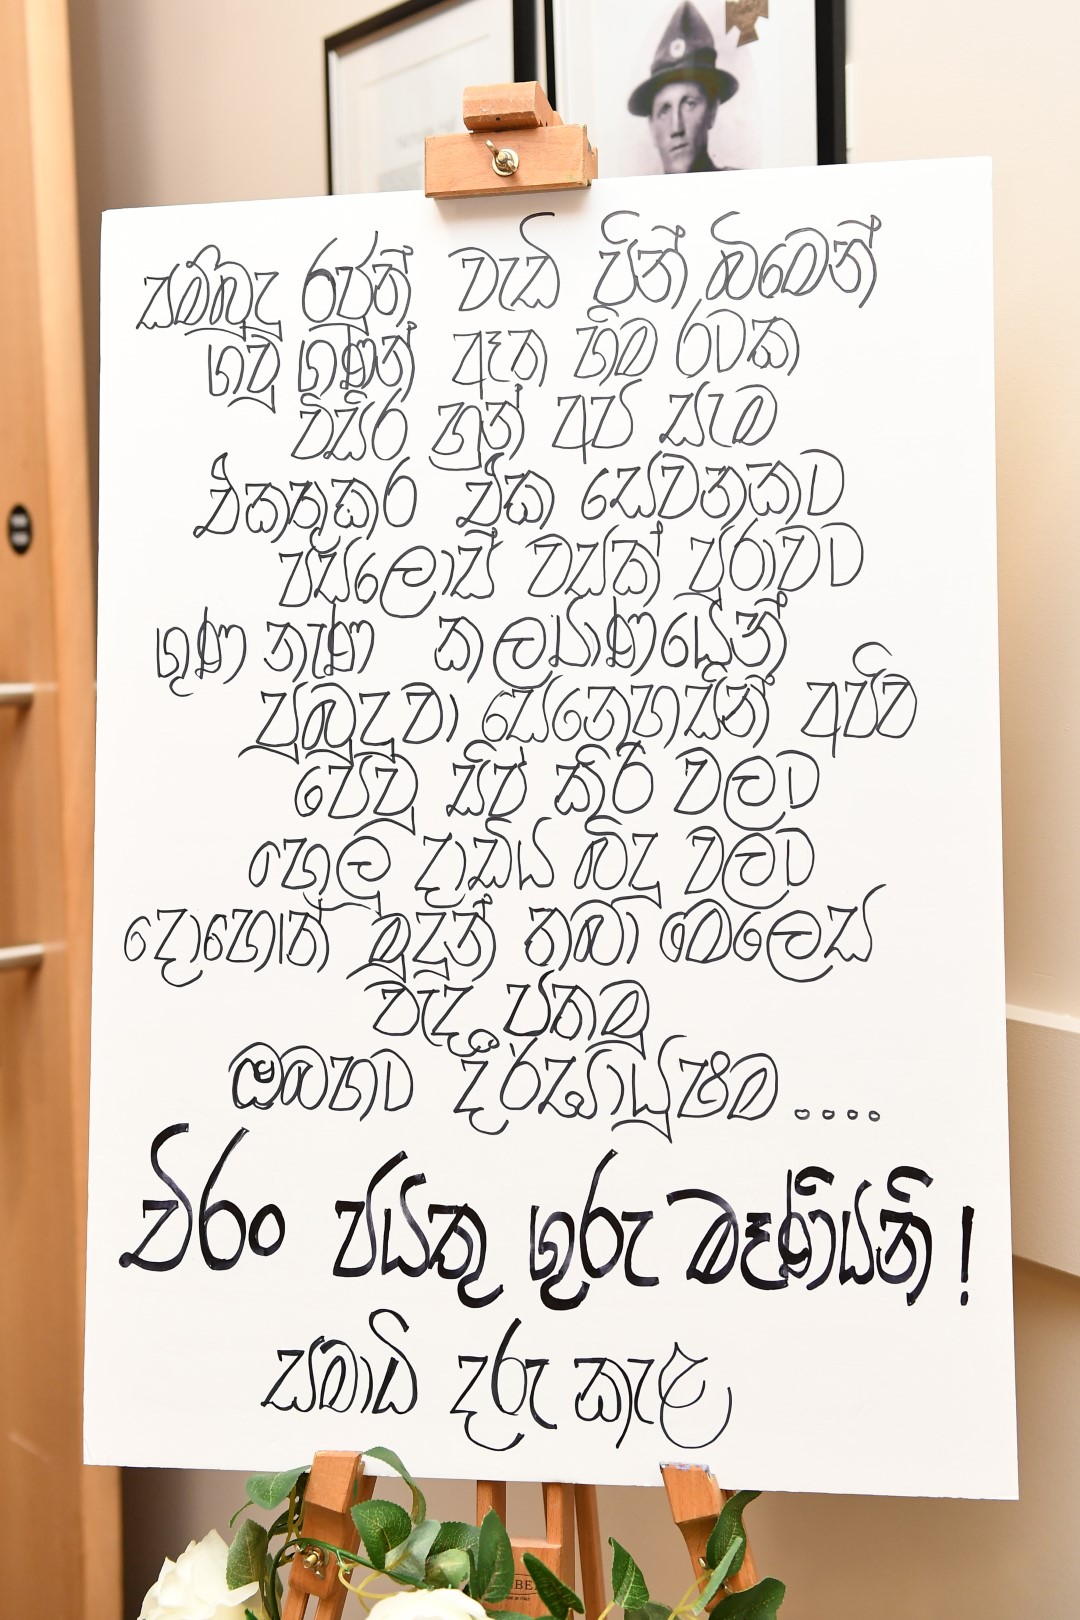 සම්බුදු රජුන් වැඩි පින් බිමෙන්
ගව් ගණන් ඈත හිම රටක
විසිර හුන් අප සැම
එකතුකර එක සෙවනකට
පස්ලොස් වසක් පුරාවට
ගුණ නැණ කල්‍යාණයෙන්
පුබුදුවා සෙනෙහසින් අපව
පෙවූ සිප් කිරි වලට
හෙලූ දාඩිය බිඳු වලට
දොහොත් මුදුන් තබා මෙලෙස
වැඳ පතමු
ඔබහට දීර්ඝායුෂම ....
චිරං ජයතු ගුරු මෑණියනි !
සමාධි දරු කැළ